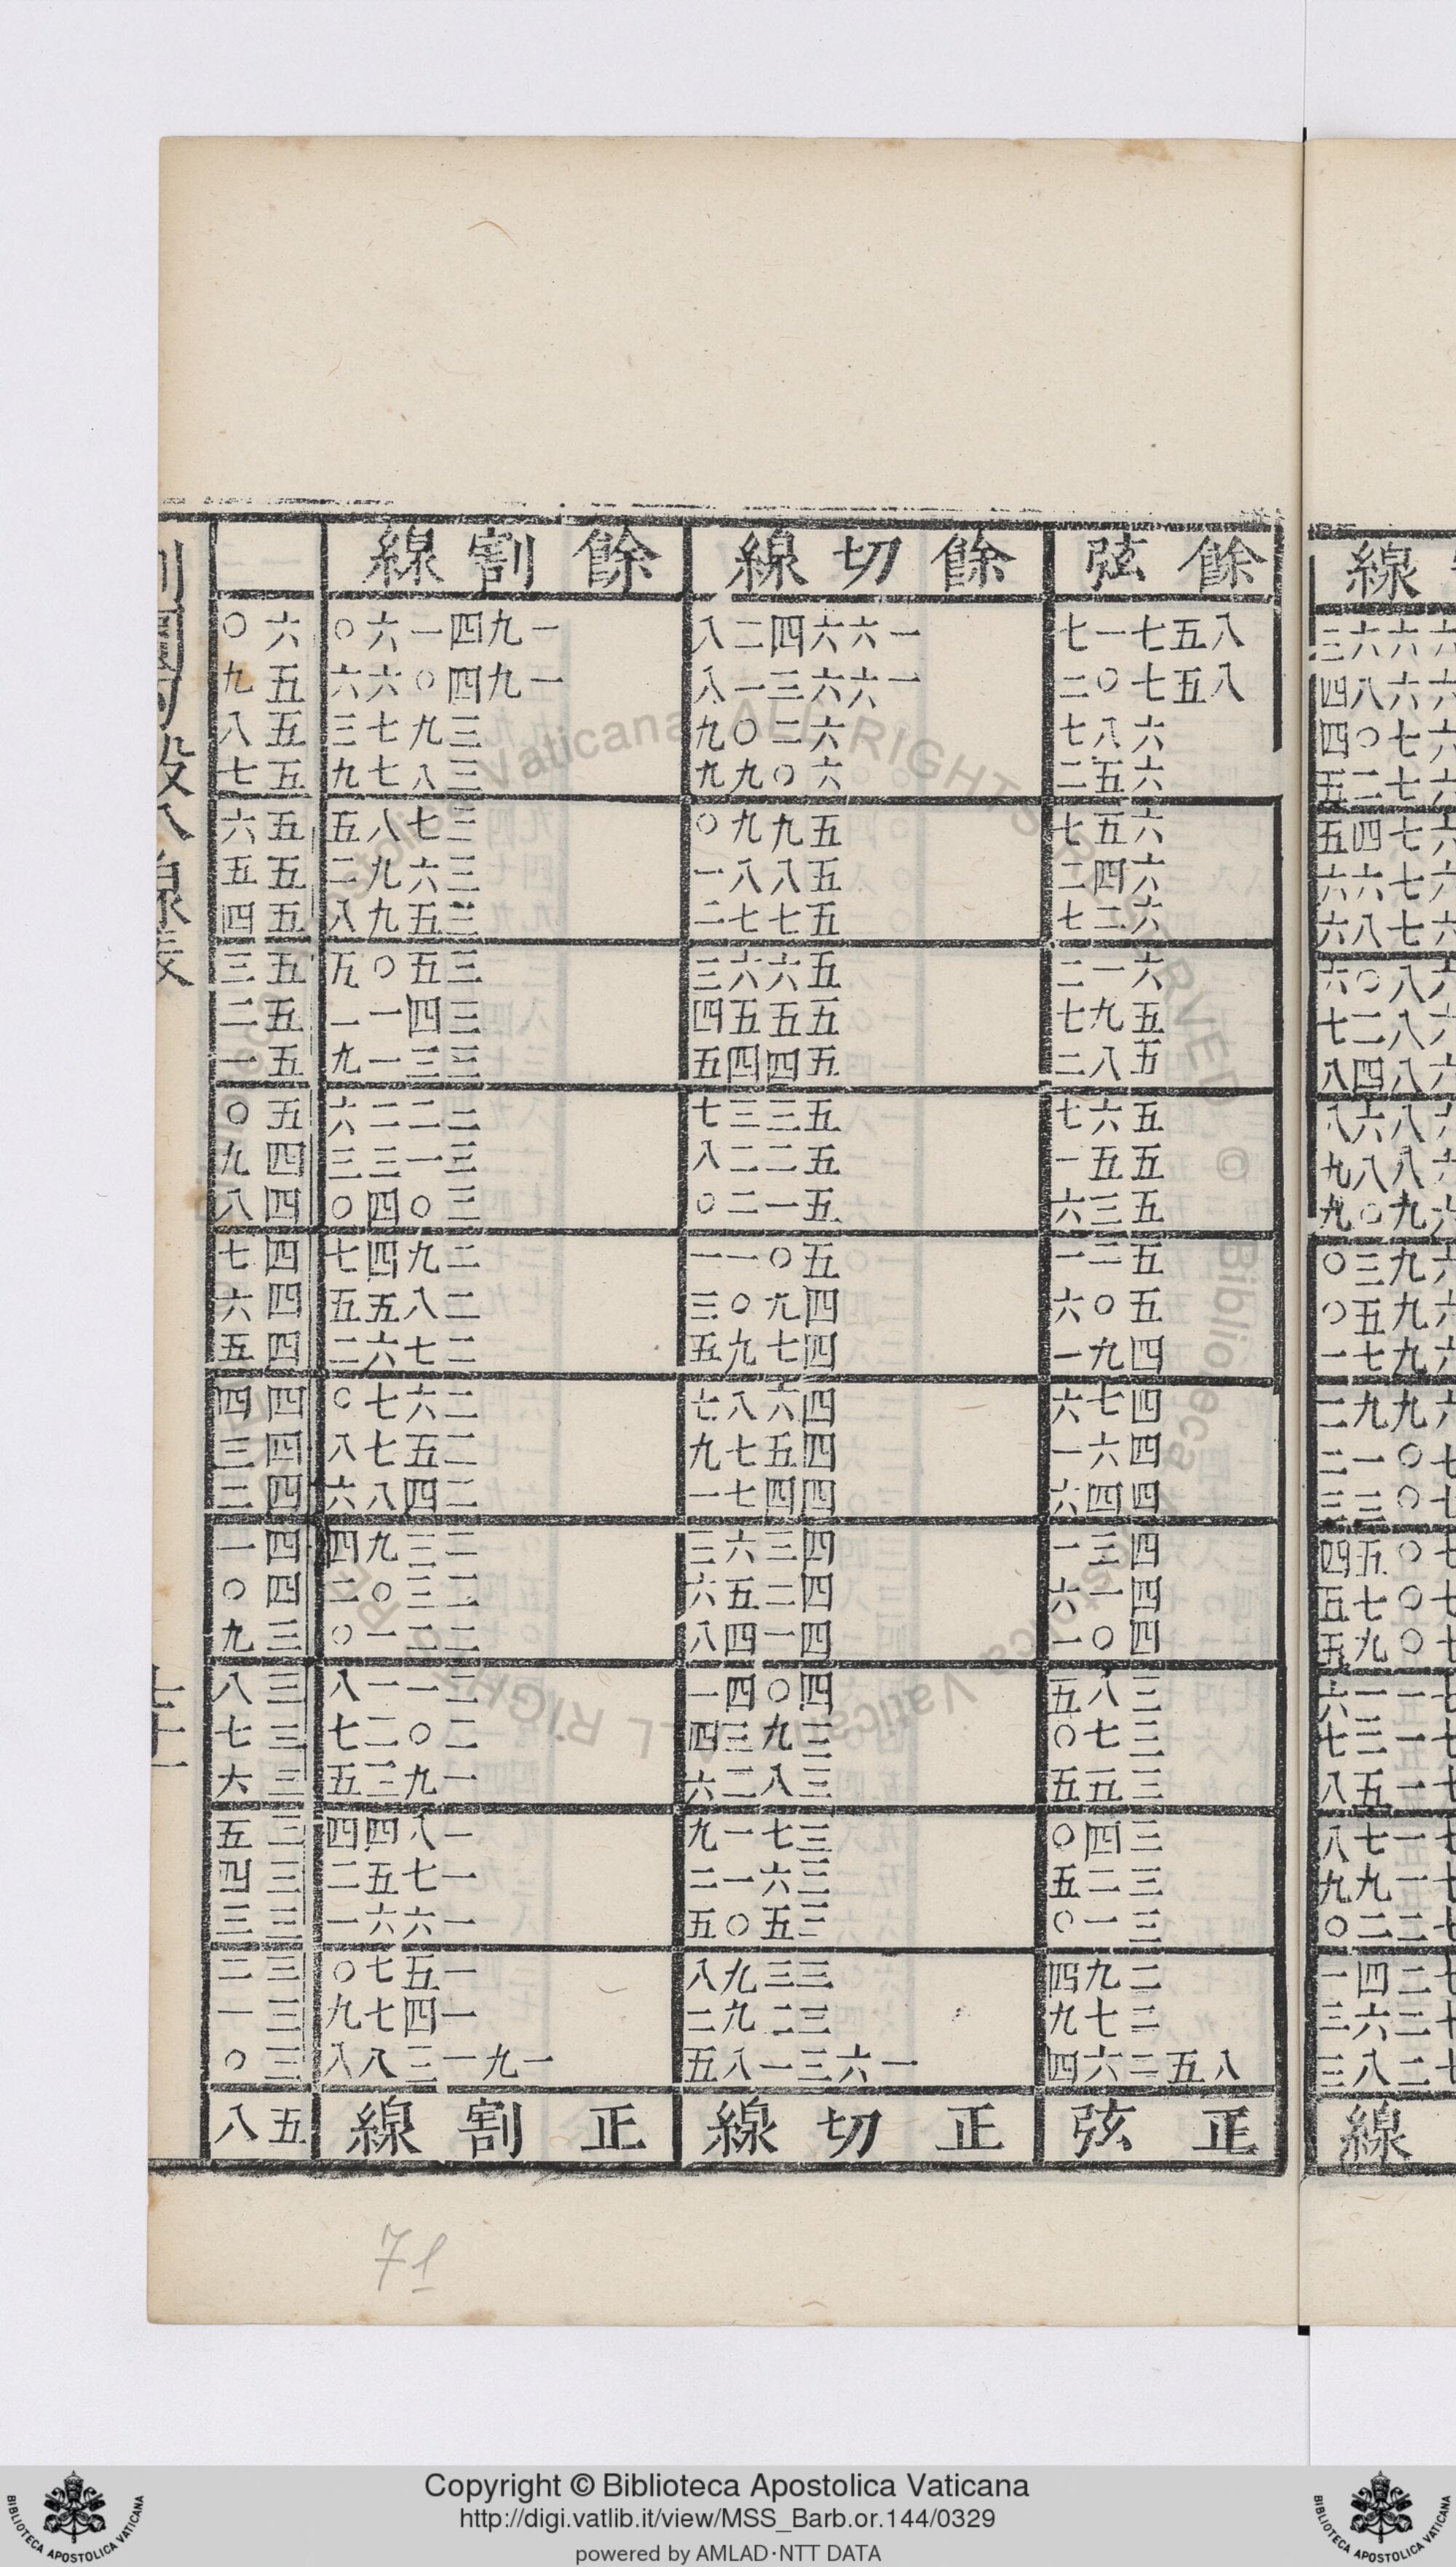 餘弦 餘切線 餘割線
八五七一七 一六六四二八 一九四一六〇 六〇
八五七〇二 一六六三一八 一九四〇六六 五九
六八七 六二〇九 三九七三 五八
六五二 六〇九九 三八七九 五七
六五七 五九九〇 三七八五 五六
六四二 五八八一 三六九二 五五
六二七 五七七二 三五九八 五四
六一二 五六六三 三五〇五 五三
五九七 五五五四 三四一二 五二
五八二 五四四五 三三一九 五一
五六七 五三三七 三二二六 五〇
五五一 五二二八 三一三三 四九
五三六 五一二〇 三〇四〇 四八
五二一 五〇一一 二九四七 四七
五〇六 四九〇三 二八五五 四六
四九一 四七九五 二七六二 四五
四七六 四六八七 二六七〇 四四
四六一 四五七九 二五七八 四三
四四六 四四七一 二四八六 四二
四三一 四三六三 二三九四 四一
四一六 四二五六 二三〇二 四〇
四〇一 四一四八 二二一〇 三九
三八五 四〇四一 二一一八 三八
三七〇 三九三四 二〇二七 三七
三五五 三八二六 一九三五 三六
三四〇 三七一九 一八四四 三五
三二五 三六一二 一七五二 三四
三一〇 三五〇五 一六六一 三三
二九四 三三九八 一五七〇 三二
二七九 三二九二 一四七九 三一
八五二六四 一六三一八五 一九一三八八 三〇
正弦 正切線 正割線 五八
71
Copyright © Biblioteca Apostolica Vaticana
http://digi.vatlib.it/view/MSS_Barb.or.144/0329
powered by AMLAD·NTT DATA